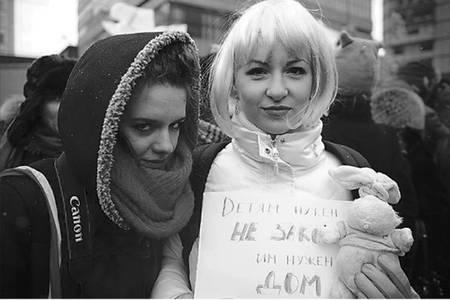 Canon
ДЕТЯМ НУЖЕН
НЕ ЗАКОН
ИМ НУЖЕН
ДОМ